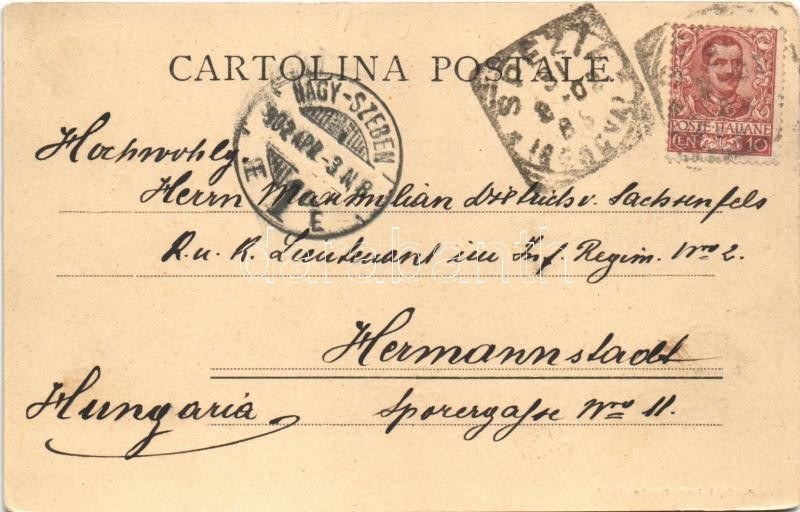 CARTOLINA POSTALE
NAGY-SZEBEN
902 APR -3 N8
E
SPEZIA
(GENOVA)
POSTE·ITALIANE
CEN 10
Hochwohlg.
Herrn Maximilian Dietrich v. Sachsenfels
K. u. K. Lieutenant im Inf. Regim. Nro 2.
darabanth
Hermannstadt
Hungaria
Sporergasse Nro 11.